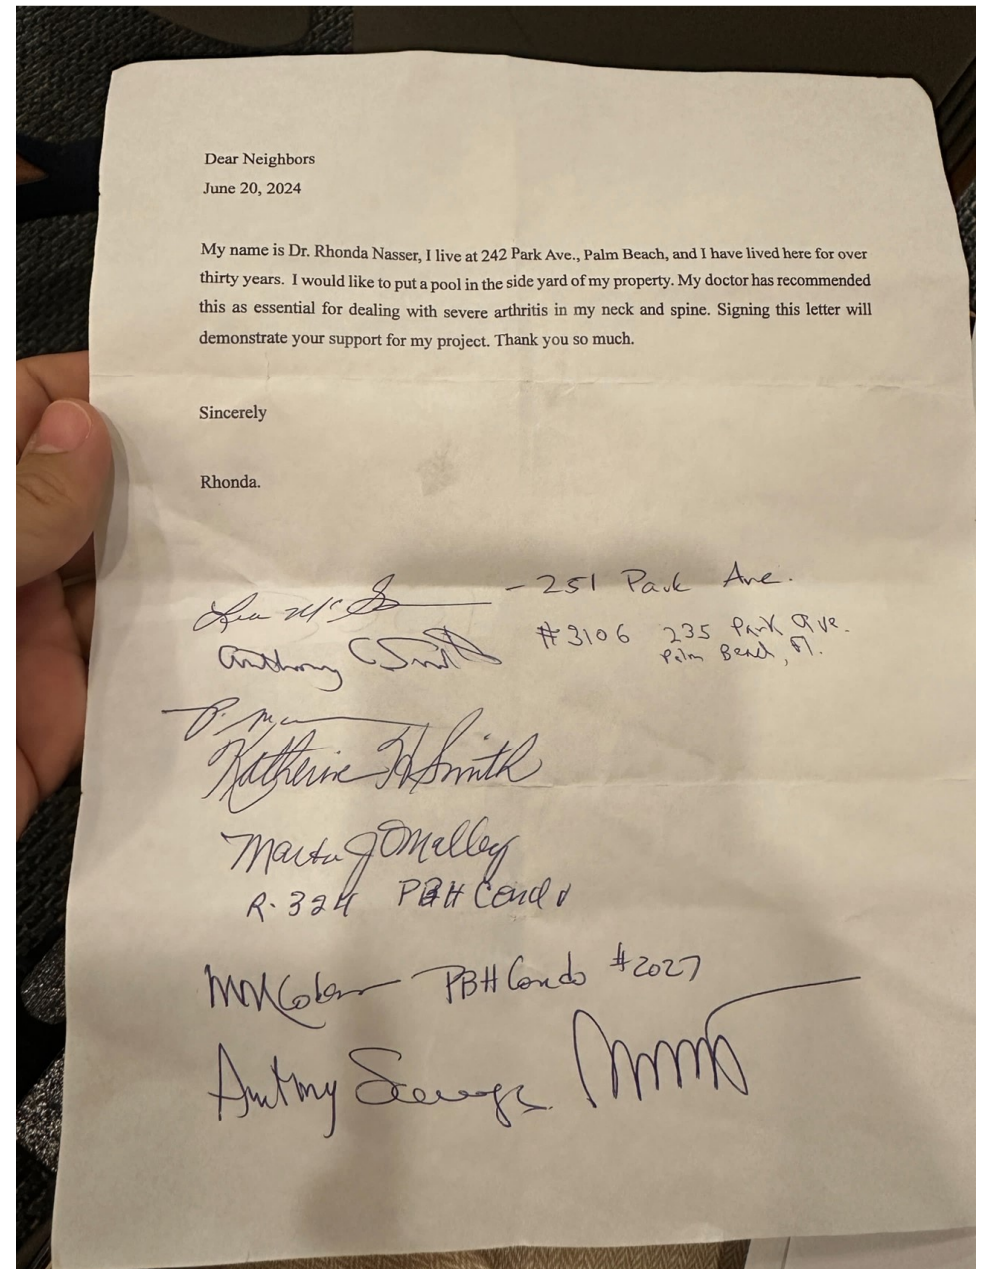 Dear Neighbors
June 20, 2024
My name is Dr. Rhonda Nasser, I live at 242 Park Ave., Palm Beach, and I have lived here for over
thirty years. I would like to put a pool in the side yard of my property. My doctor has recommended
this as essential for dealing with severe arthritis in my neck and spine. Signing this letter will
demonstrate your support for my project. Thank you so much.
Sincerely
Rhonda.
- 251 Park Ave.
Anthony C Smith #3106 235 Park Ave.
Palm Beach, Fl.
Katherine H Smith
Marta J OMalley
R-324 PBH Condo
PBH Condo #2027
Anthony